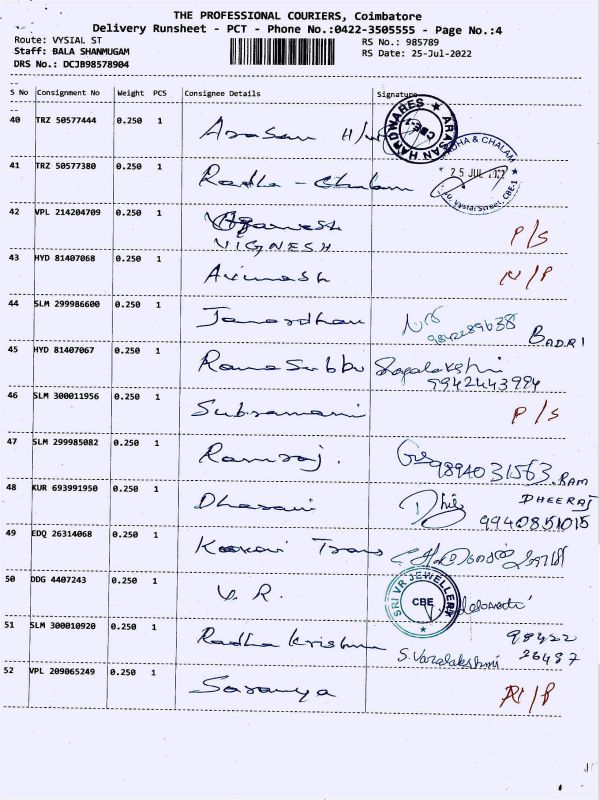 THE PROFESSIONAL COURIERS, Coimbatore
Delivery Runsheet - PCT - Phone No.:0422-3505555 - Page No.:4
Route: VYSIAL ST RS No.: 985789
Staff: BALA SHANMUGAM RS Date: 25-Jul-2022
DRS No.: DCJB98578904
S No Consignment No Weight PCS Consignee Details Signature
40 TRZ 50577444 0.250 1 Arasan H/w ARASAN HARDWARES CBE-1
41 TRZ 50577380 0.250 1 Radha - Chalam RADHA & CHALAM 25 JUL 2022 Vysial Street, CBE-1
42 VPL 214204709 0.250 1 VIGNESH P/S
43 HYD 81407068 0.250 1 Avinash N/P
44 SLM 299986600 0.250 1 Janardhan BADRI
45 HYD 81407067 0.250 1 Rama Subbu 9942443994
46 SLM 300011956 0.250 1 Subramani P/S
47 SLM 299985082 0.250 1 Ramraj. 9894031563. RAM
48 KUR 693991950 0.250 1 Dharani DHEERAJ
9940851015
49 EDQ 26314068 0.250 1 Trans
50 DDG 4407243 0.250 1 V. R. SRI VR JEWELLERY CBE
51 SLM 300010920 0.250 1 Radha krishna S. Varalakshmi 98422
26487
52 VPL 209065249 0.250 1 Saranya N/P